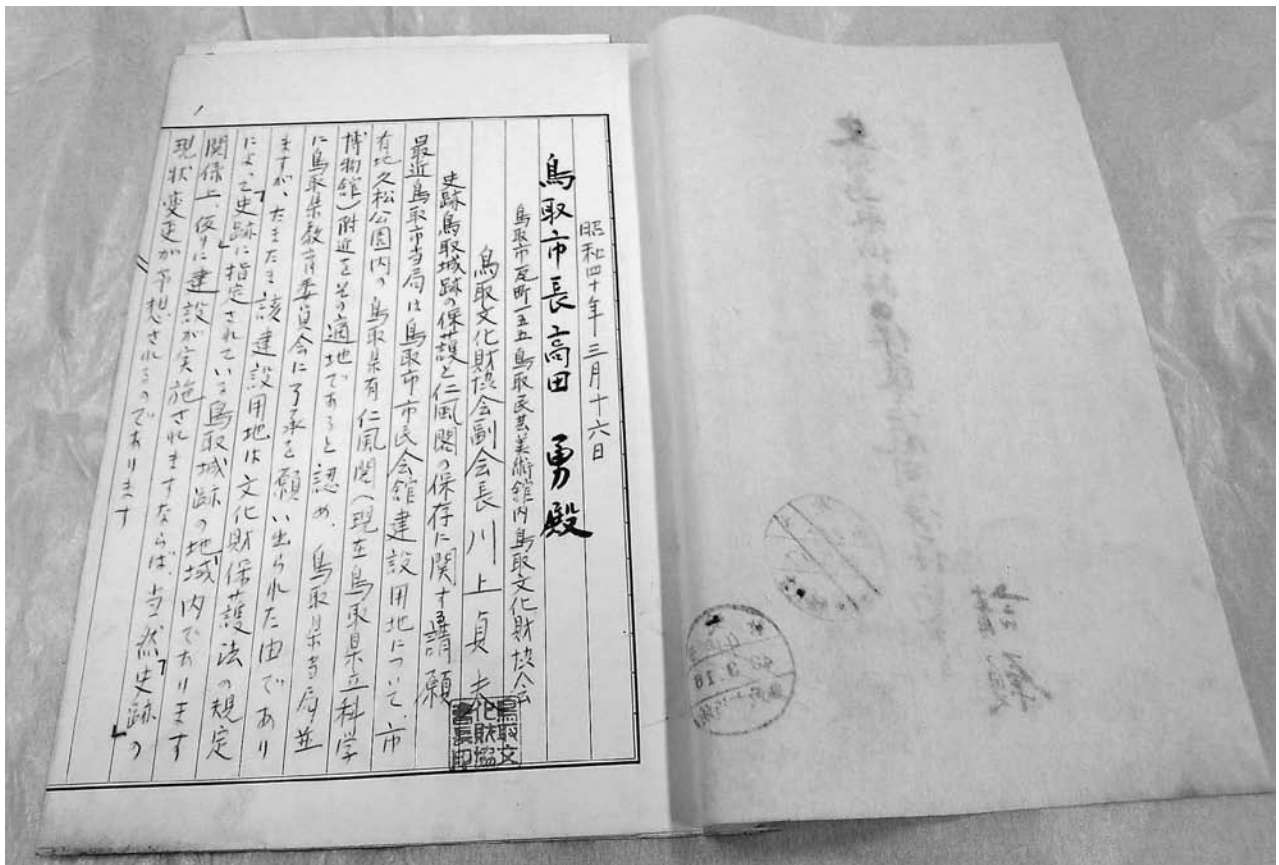 昭和四十年三月十六日
鳥取市長高田 勇殿
鳥取市瓦町一五五鳥取民芸美術館内鳥取文化財協会
鳥取文化財協会副会長 川上貞夫
史跡鳥取城跡の保護と仁風閣の保存に関す請願
最近鳥取市当局は鳥取市市民会館建設用地について、市
有地久松公園内の鳥取県有仁風閣(現在鳥取県立科学
博物館)附近をその適地であると認め、鳥取県当局並
に鳥取県教育委員会に了承を願い出られた由であり
ますが、たまたま該建設用地は文化財保護法の規定
によって「史跡」に指定されている鳥取城跡の地域内であります
関係上、仮りに建設が実施されますならば、当然「史跡」の
現状変更が予想されるのであります
鳥取文
化財協
会長印
請願